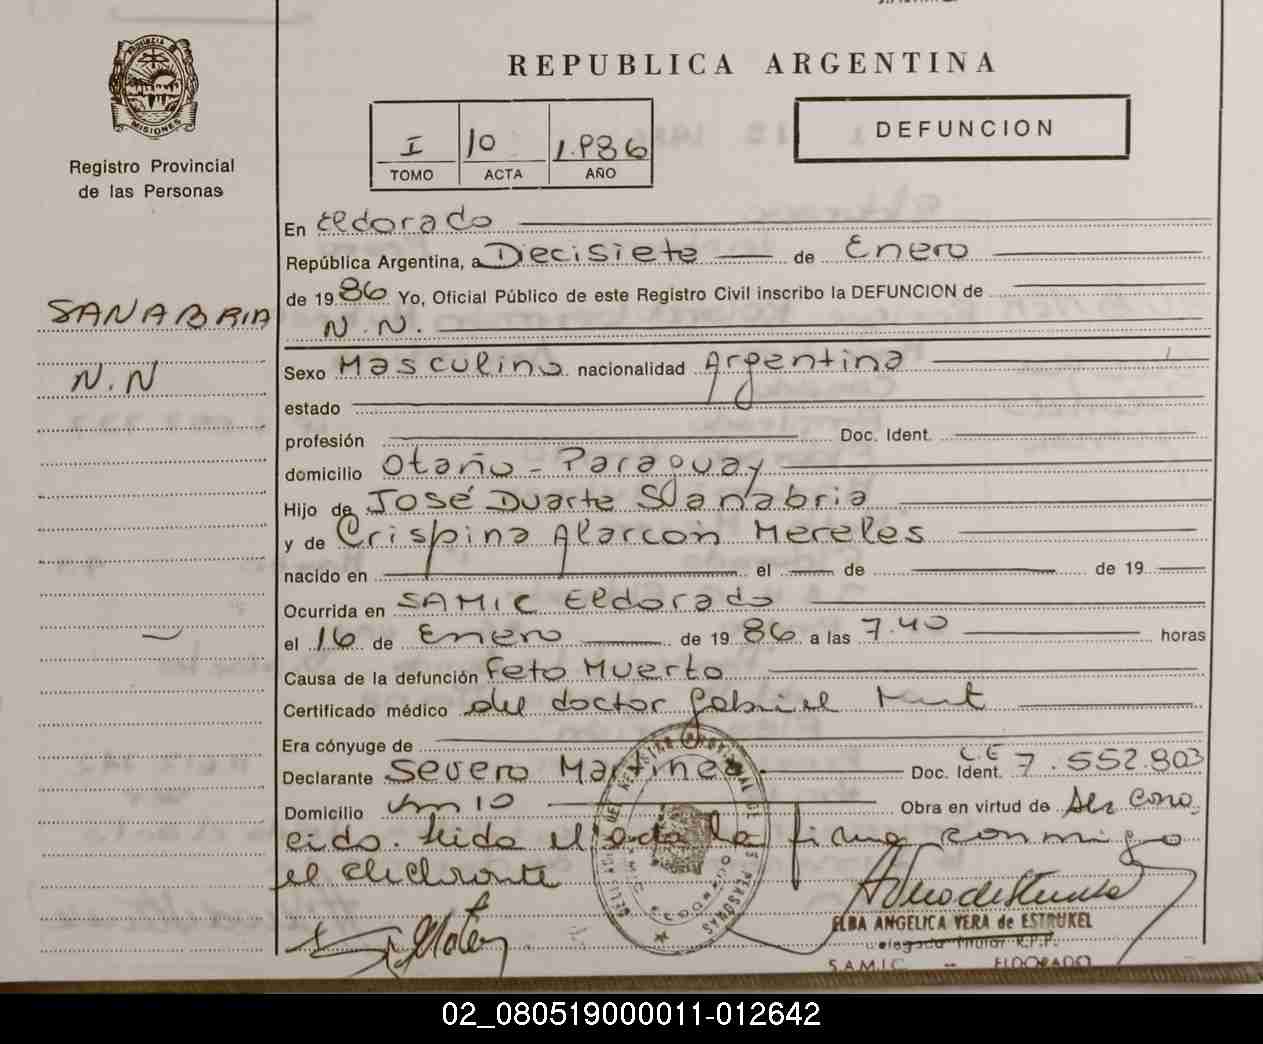 PROVINCIA DE
MISIONES
Registro Provincial
de las Personas
SANABRIA
N.N
REPUBLICA ARGENTINA
I 10 1.986
TOMO ACTA AÑO
DEFUNCION
En Eldorado
República Argentina, a Diecisiete de Enero
de 1986 Yo, Oficial Público de este Registro Civil inscribo la DEFUNCION de
N.N.
Sexo Masculino nacionalidad Argentina
estado
profesión Doc. Ident.
domicilio Otaño - Paraguay
Hijo de José Duarte Sanabria
y de Crispina Alarcon Mereles
nacido en el de de 19
Ocurrida en SAMIC Eldorado
el 16 de Enero de 1986 a las 7.40 horas
Causa de la defunción Feto Muerto
Certificado médico del doctor Gabriel
Era cónyuge de
Declarante Severo Martinez Doc. Ident. L.E 7.552.803
Domicilio km 10 Obra en virtud de ser cono
cido. leida el acta la firma conmigo
el declarante
ELBA ANGELICA VERA de ESTRUKEL
Delegada Titular R.P.P.
S.A.M.I.C. - ELDORADO
02_080519000011-012642